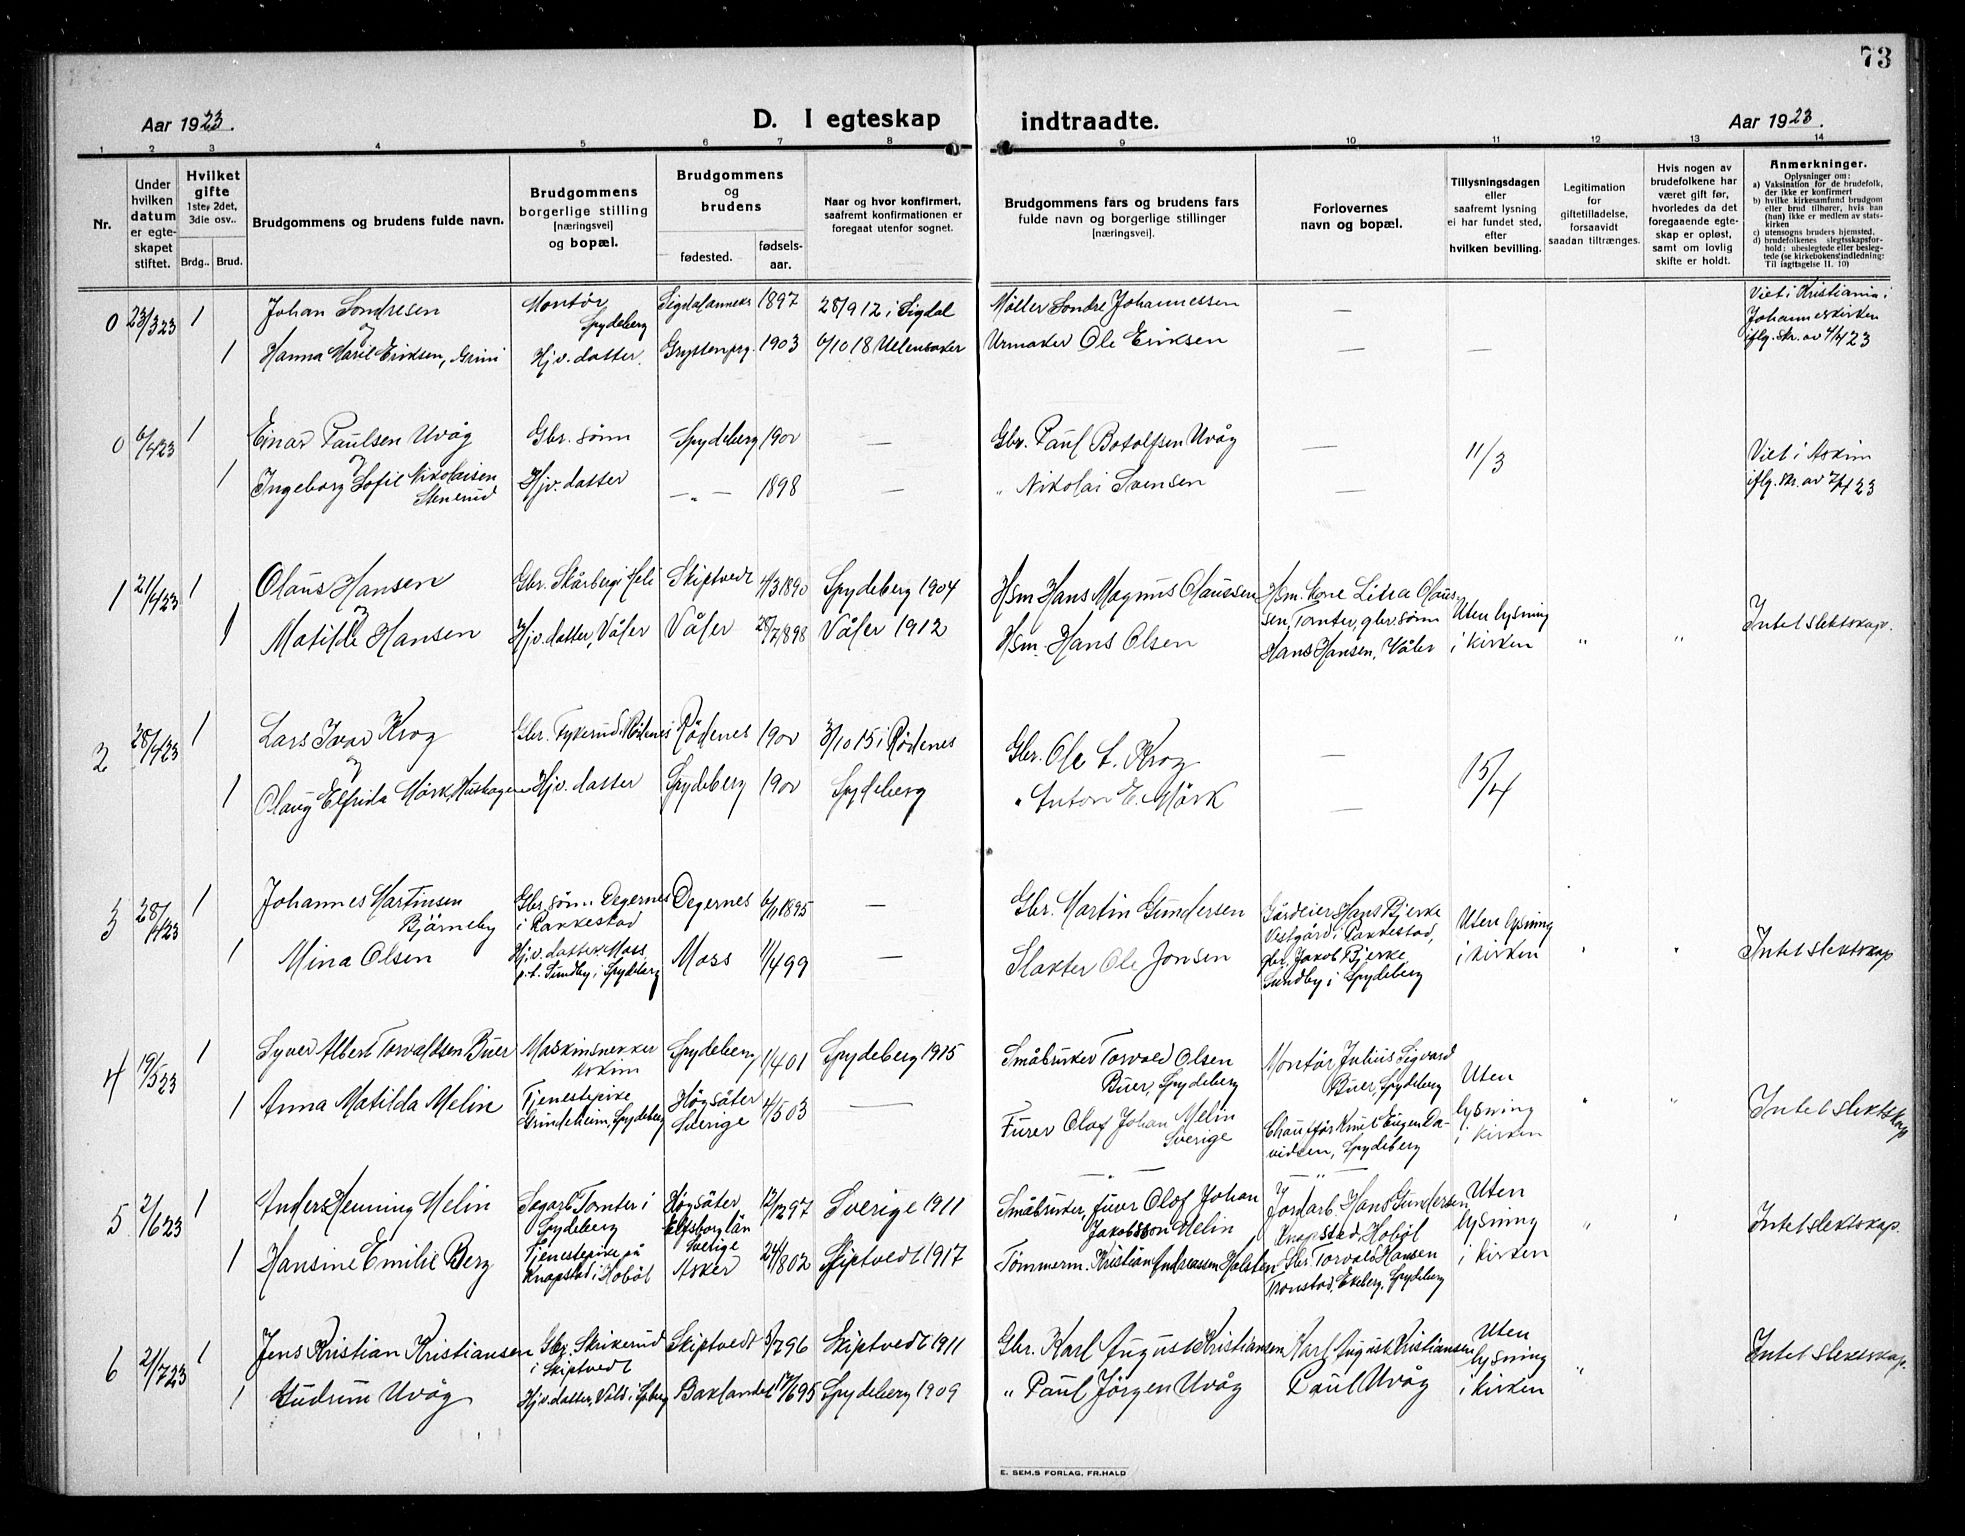 73
Aar 1923.
D. I egteskap indtraadte.
Aar 1923.
1 2 3 4 5 6 7 8 9 10 11 12 13 14
Nr.
Under hvilken datum er egteskapet stiftet.
Hvilket gifte 1ste, 2det, 3die osv..
Brdg.. Brud.
Brudgommens og brudens fulde navn.
Brudgommens borgerlige stilling [næringsvei] og bopæl.
Brudgommens og brudens
fødested.
fødsels-aar.
Naar og hvor konfirmert, saafremt konfirmationen er foregaat utenfor sognet.
Brudgommens fars og brudens fars fulde navn og borgerlige stillinger [næringsvei].
Forlovernes navn og bopæl.
Tillysningsdagen eller saafremt lysning ei har fundet sted, efter hvilken bevilling.
Legitimation for giftetilladelse, forsaavidt saadan tiltrænges.
Hvis nogen av brudefolkene har været gift før, hvorledes da det foregaaende egteskap er opløst, samt om lovlig skifte er holdt.
Anmerkninger.
Oplysninger om:
a) Vaksination for de brudefolk, der ikke er konfirmert
b) hvilke kirkesamfund brudgom eller brud tilhører, hvis han (hun) ikke er medlem av statskirken
c) utensogns bruders hjemsted.
d) brudefolkenes slegtsskapsforhold: ubeslegtede eller beslegtede (se kirkebokens indledning: Til iagttagelse 11. 10)
0 23/3 23 1 Johan Sondresen Montör Spydeberg Sigdalannex 1897 28/9 12 i Sigdal Møller Sondre Johannessen — Viet i Kristiania i Johanneskirken iflg. skr. av 4/4 23
og
1 Hanna Marie Eriksen, Grini Hjv. datter Gryttenprg. 1903 6/10 18 Ullensaker Urmaker Ole Eriksen — —
0 6/4 23 1 Einar Paulsen Uvåg Gbr. sönn Spydeberg 1900 — Gbr. Paul Botolfsen Uvåg — 11/3 Viet i Askim iflg. skr. av 7/4 23
og
1 Ingeborg Sofie Nikolaisen Stenerud Hjv. datter —"— 1898 — " Nikolai Svensen —
1 21/4 23 1 Olaus Hansen Gbr. Skårberg i Heli Skiptvedt 4/3 1890 Spydeberg 1904 Hsm Hans Magnus Olaussen Hsm. kone Lisa Olaussen, Tomter, gbr. sönn Hans Hansen, Våler Uten lysning i kirken " " Intet slektskap.
og
1 Matilde Hansen Hjv. datter, Våler Våler 28/7 1898 Våler 1912 Hsm. Hans Olsen
2 28/4 23 1 Lars Ivar Krog Gbr. Tykerud i Rödenes Rödenes 1900 3/10 15 i Rödenes Gbr. Ole L. Krog — 15/4
og
1 Olaug Elfrida Mörk, Hushagen Hjv. datter Spydeberg 1900 Spydeberg " Anton E. Mörk —
3 28/4 23 1 Johannes Martinsen Björneby Gbr. sönn Degernes i Rakkestad Degernes 6/11 1895 — Gbr. Martin Gundersen Gårdeier Hans Bjerke Vestgård i Rakkestad, gbr. Jakob Bjerke, Sundby i Spydeberg Uten lysning i kirken " " Intet slektskap
1 Mina Olsen Hjv. datter Moss, p.t. Sundby i Spydeberg Moss 11/4 99 — Slakter Ole Jonsen
4 19/5 23 1 Syver Albert Torvaldsen Buer Maskinsnekker Askim Spydeberg 1/4 01 Spydeberg 1915 Småbruker Torvald Olsen Buer, Spydeberg Montör Julius Sigvard Buer, Spydeberg Uten lysning i kirken " " Intet slektskap
1 Anna Matilda Melin Tjenestepike Grindeheim, Spydeberg Högsäter Sverige 4/5 03 — Furer Olof Johan Melin Sverige Chaufför Knut Eugen Davidsen, Spydeberg
5 2/6 23 1 Anders Henning Melin Sagarb. Tomter i Spydeberg Högsäter Elfsborg län Sverige 12/12 97 Sverige 1911 —"— Småbruker, furer Olof Johan Jakobsson Melin —"— Jordarb. Hans Gundersen Knapstad, Hoböl Uten lysning i kirken " ' Intet slektskap.
1 Hansine Emilie Berg Tjenestepike på Knapstad i Hoböl Asker 24/8 02 Skiptvedt 1917 Tömmerm. Kristian Andreassen Holsten Gbr. Torvald Hansen Tronstad, Ekeberg, Spydeberg
6 21/7 23 1 Jens Kristian Kristiansen Gbr. Skrikerud i Skiptvedt Skiptvedt 5/7 96 Skiptvedt 1911 Gbr. Karl August Kristiansen Karl August Kristiansen Uten lysning i kirken " Intet slektskap.
1 Gudrun Uvåg Hjv. datter, Vold i Spberg Baklandet 17/6 95 Spydeberg 1909 " Paul Jörgen Uvåg Paul Uvåg
E. SEM.S FORLAG, FR.HALD